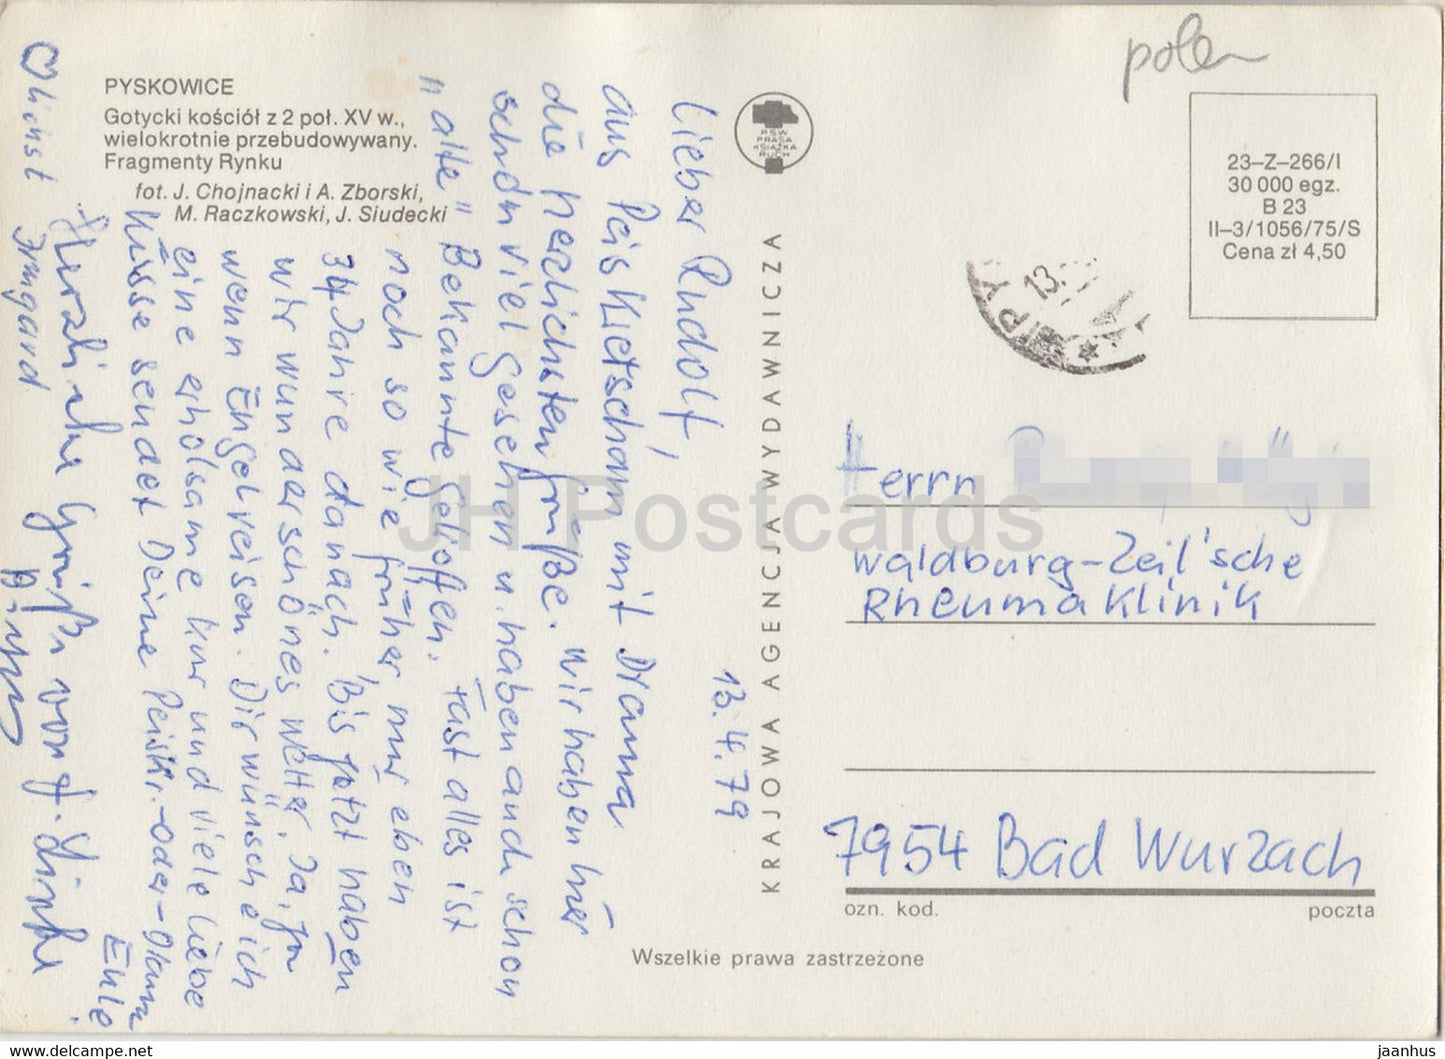 polen
PYSKOWICE
Gotycki kościół z 2 poł. XV w.,
wielokrotnie przebudowywany.
Fragmenty Rynku
fot. J. Chojnacki i A. Zborski,
M. Raczkowski, J. Siudecki
PSW
PRASA
KSIĄŻKA
RUCH
KRAJOWA AGENCJA WYDAWNICZA
23–Z–266/I
30 000 egz.
B 23
II–3/1056/75/S
Cena zł 4,50
PY
13.
13.4.79
Lieber Rudolf,
aus Peiskretscham mit
die herzlichsten Grüße. Wir haben hier
schon viel gesehen u. haben auch schon
"alte" Bekannte getroffen. Fast alles ist
noch so wie früher, nur eben
34 Jahre danach. Bis jetzt haben
wir wunderschönes Wetter. Ja, ja
wenn Engel reisen. Dir wünsche ich
eine erholsame Kur und viele liebe
Küsse sendet Deine Peiskr.-Oder-
Eule
Herzliche Grüße von
♡lichst Irmgard
Herrn
Waldburg-Zeil'sche
Rheumaklinik
7954 Bad Wurzach
ozn. kod.
poczta
Wszelkie prawa zastrzeżone
JH Postcards
delcampe.net
jaanhus